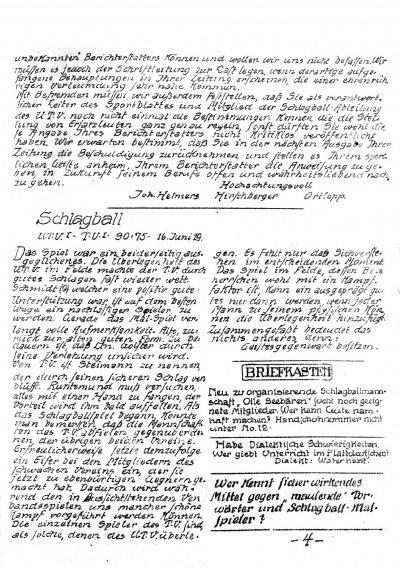 unbekannten Berichterstatters können und wollen wir uns nicht befassen. Wir
müssen es jedoch der Schriftleitung zur Last legen, wenn derartige aufge-
fangene Behauptungen in Ihrer Zeitung erscheinen, die einer ehrenrüh-
rigen Verleumdung sehr nahe kommen.
Mit Befremden müssen wir außerdem feststellen, daß Sie als verantwort-
licher Leiter des Sportblattes und Mitglied der Schlagball-Abteilung
des U.T.V. noch nicht einmal die Bestimmungen kennen, die die Stel-
lung von Ersatzleuten ganz genau regeln, sonst dürften Sie wohl die
se Angabe Ihres Berichterstatters nicht kritiklos veröffentlicht
haben. Wir erwarten bestimmt, daß Sie in der nächsten Ausgabe Ihrer
Zeitung die Beschuldigung zurücknehmen und stellen es Ihrem sport-
lichen Geiste anheim, Ihrem Berichterstatter die Anweisung zu ge-
ben, in Zukunft seinem Berufe offen und wahrheitsliebend nach
zu gehen.
Hochachtungsvoll
Joh. Helmers Hirschberger Ortlepp.
Schlagball
T.V.I. 90:75. 16. Juni 29.
Das Spiel war ein beiderseitig aus-
geglichenes. Die Überlegenheit des
im Felde machte der T.V. durch
gutes Schlagen fast wieder wett.
Schmidt welcher eine große gute
Unterstützung war, ist auf dem besten
Wege ein erstklassiger Spieler zu
werden. Gerade das Mal-Spiel ver
langt volle Aufmerksamkeit. Also, zu-
rück zur alten guten Form. Zu be
dauern ist, daß durch
seine Verletzung unsicher wird.
Von T.V. ist Steimann zu nennen,
der durch seinen sicheren Schlag ver
blüfft. Runtemund muß versuchen,
alles mit einer Hand zu fangen, der
Vorteil wird ihm bald auffallen. Als
das Schlagballspiel begann, konnte
man bemerken, daß die Mannschaf-
ten des T.V. abfielen, gegenüber de-
nen, der übrigen beiden Vereine.
Erfreulicherweise setzte demzufolge
ein Eifer bei den Mitgliedern des
schwachen Vereins ein, der sie
jetzt zu ebenbürtigen Gegnern ge-
macht hat. Dadurch wird wäh-
rend den in Aussicht stehenden Ver
bandsspielen uns mancher schöne
Kampf vorgeführt werden können.
Die einzelnen Spieler des T.V. sind,
als solche, denen des überle-
gen. Es fehlt nur das Sichverste-
hen im entscheidenden Moment.
Das Spiel im Felde, dessen Be-
herrschen wohl mit ein Kampf-
faktor ist, kann ein ausgeprägt gu-
tes nur dann werden, wenn jeder
Mann zu seinem physischen Kön-
nen die Überlegenheit hinzufügt.
Zusammengefaßt bedeutet das
nichts anderes denn:
Geistesgegenwart besitzen.
BRIEFKASTEN
Neu zu organisierende Schlagballmann-
schaft, „Die Seebären“ sucht noch geeig-
nete Mitglieder. Wer kann Leute nam-
haft machen? Handschuhnummer nicht
unter No. 12.
Habe Dialektische Schwierigkeiten.
Wer giebt Unterricht im Plattdeutschen
Dialekt. Waterkent.
Wer kennt sicher wirkendes
Mittel gegen „maulende“ Tor-
wärter und Schlagball-Mal-
spieler?
- 4 -